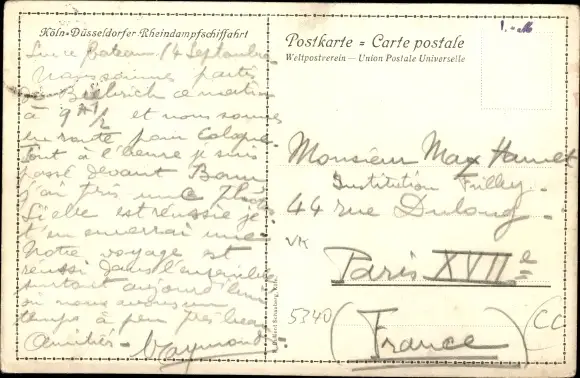 Köln-Düsseldorfer Rheindampfschiffahrt
Sur ce Bateau. 14 Septembre.
Nous sommes partis
de Biebrich ce matin
à 9 h ½ et nous sommes
en route pour Cologne.
Tout à l'heure je suis
passé devant Bonn
j'ai pris une photo
Si elle est réussie je
t'en enverrai une.
Notre voyage est
réussi dans l'ensemble
surtout aujourd'hui
où nous avons un
temps à peu près beau.
Amitiés. Raymond
Postkarte = Carte postale
Weltpostverein — Union Postale Universelle
Monsieur Max Hamet
Institution Frilley.
44 rue Dulong.
VK
Paris XVIIe
5340
(France)
CC